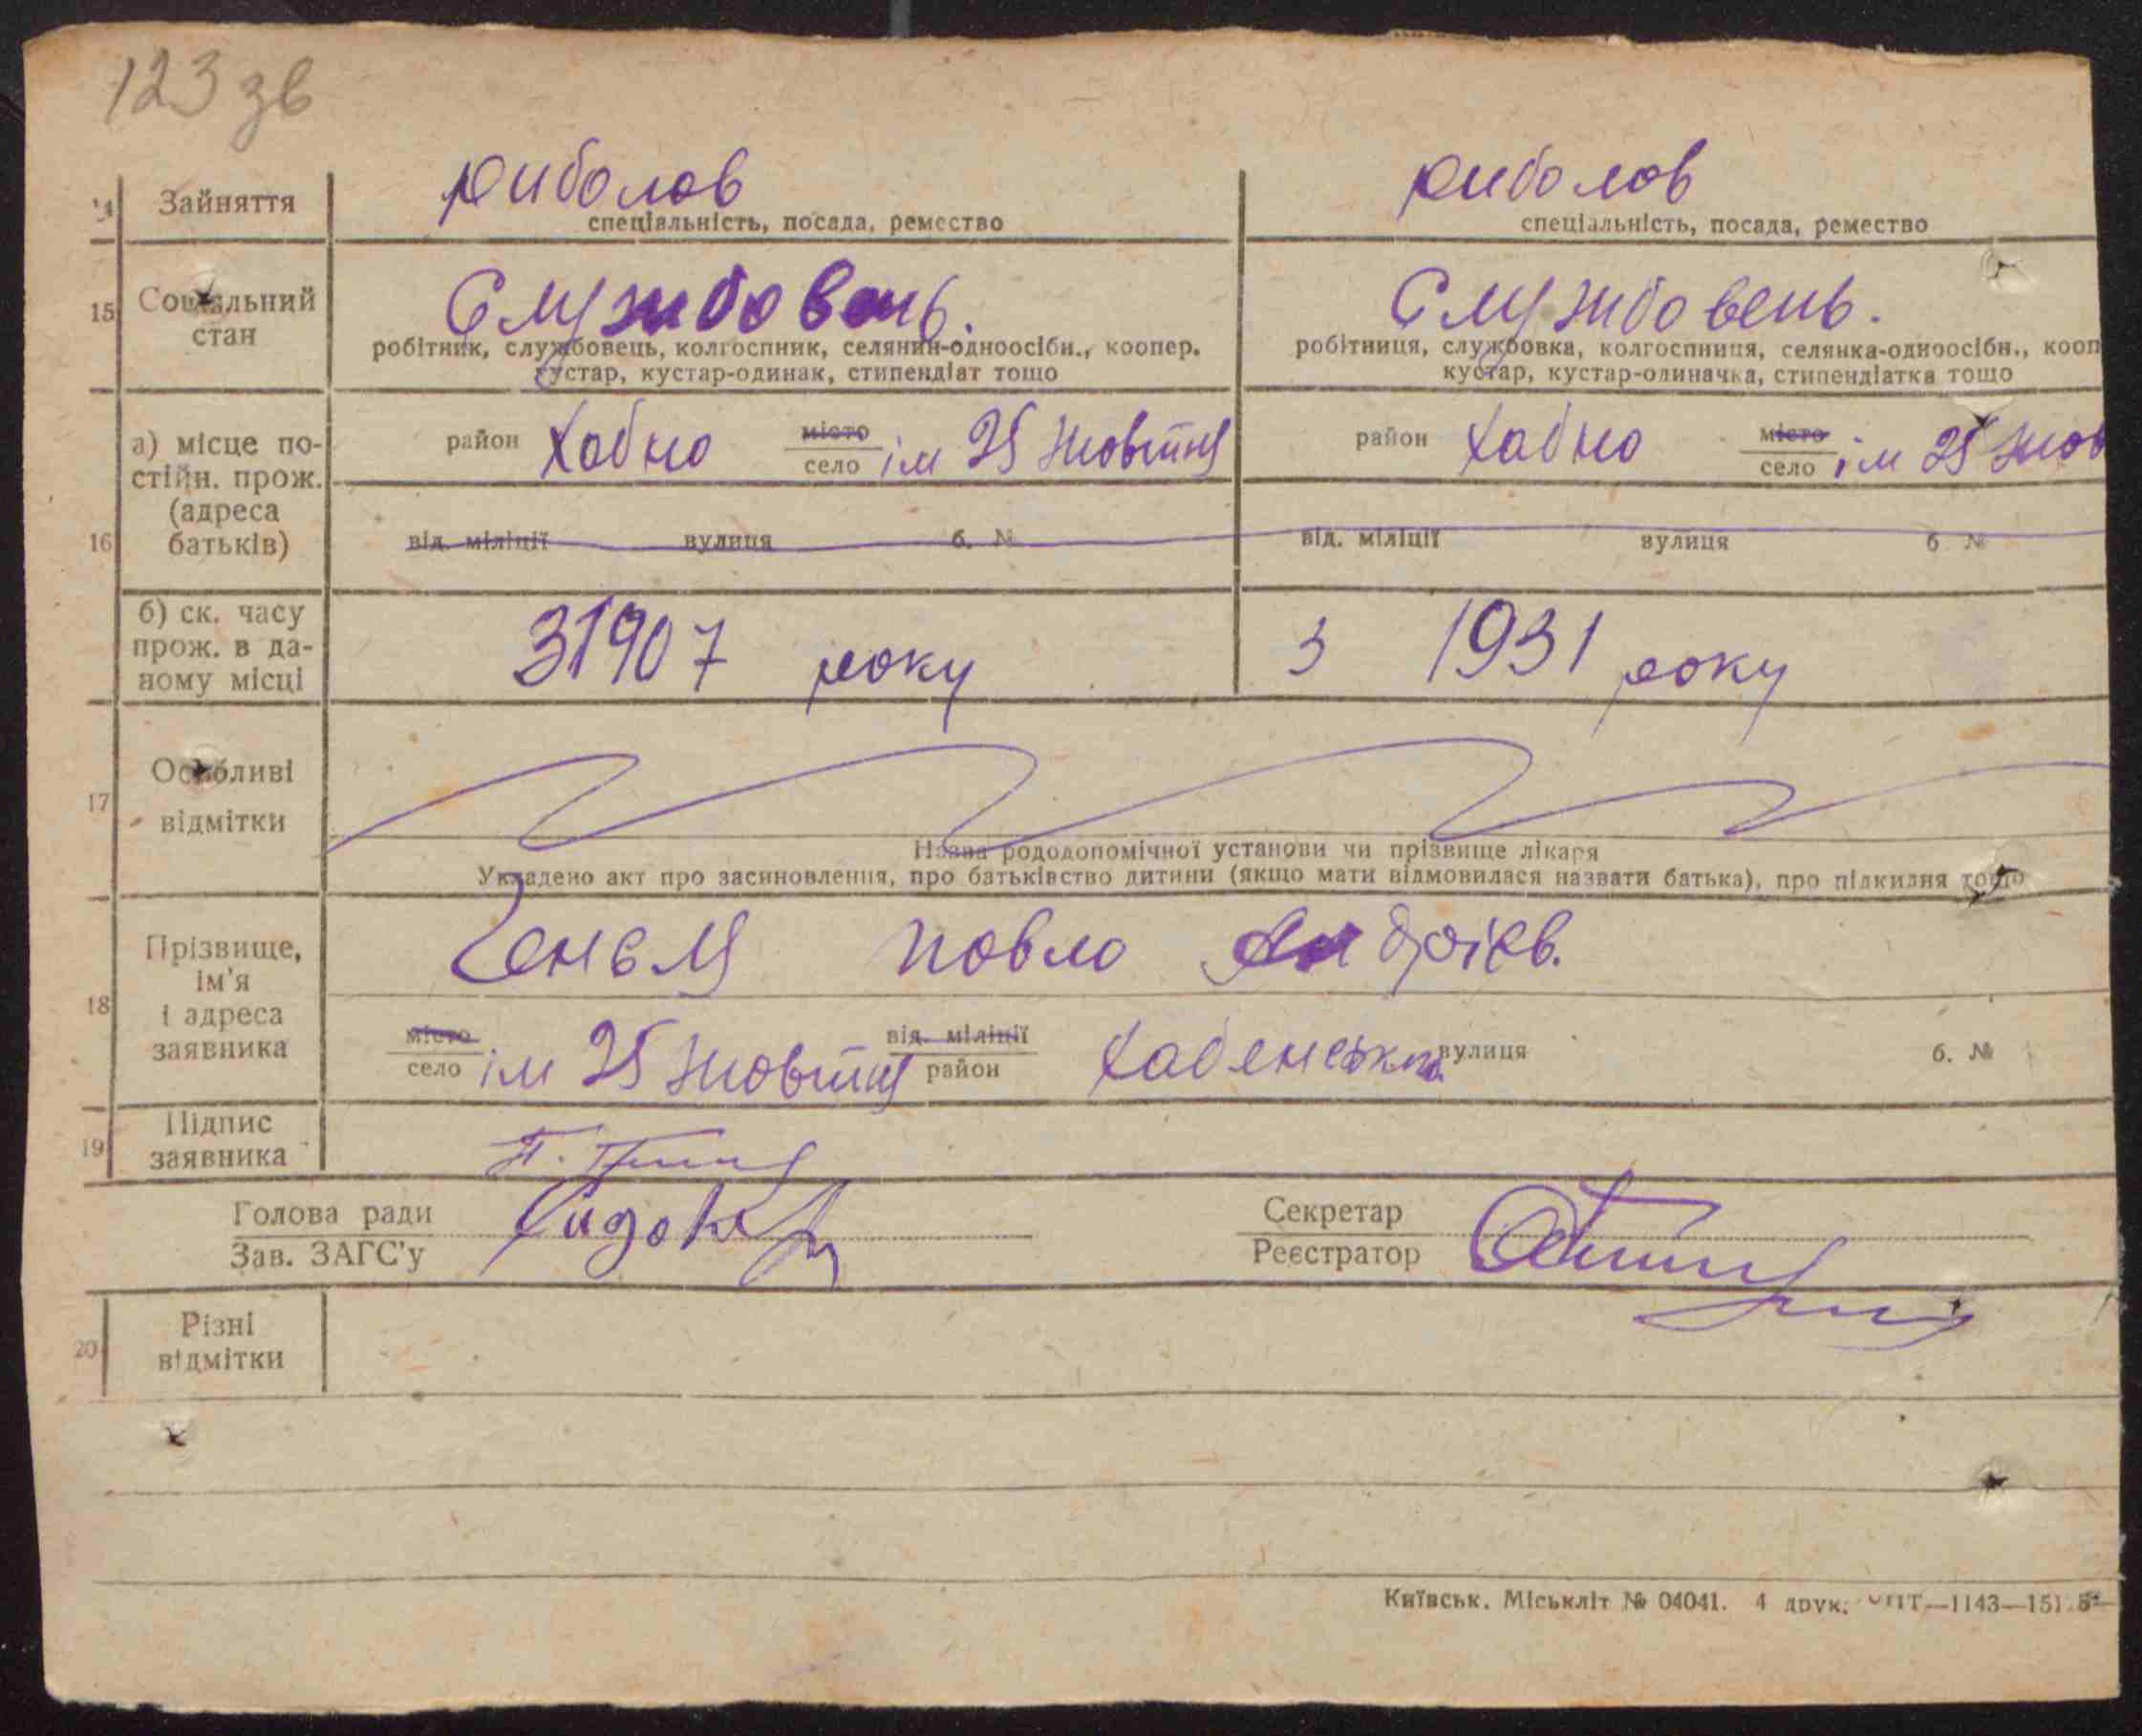 123 зв
14 Зайняття риболов риболов
спеціальність, посада, ремество спеціальність, посада, ремество
15 Соціальний стан Службовець. Службовець.
робітник, службовець, колгоспник, селянин-одноосібн., коопер. робітниця, службовка, колгоспниця, селянка-одноосібн., кооп
кустар, кустар-одинак, стипендіат тощо кустар, кустар-одиначка, стипендіатка тощо
16 а) місце по-
стійн. прож.
(адреса
батьків)
район Хабно місто село ім 25 Жовтня район Хабно місто село ім 25 Жов
від. міліції вулиця б. № від. міліції вулиця б №
б) ск. часу
прож. в да-
ному місці
З 1907 року з 1931 року
17 Особливі
відмітки
Назва рододопомічної установи чи прізвище лікаря
Укладено акт про засиновлення, про батьківство дитини (якщо мати відмовилася назвати батька), про підкидня тощо
18 Прізвище,
ім'я
і адреса
заявника
Повло Андрієв.
місто село ім 25 Жовтня від. міліції район Хабенська вулиця б. №
19 Підпис
заявника
Голова ради
Зав. ЗАГС'у
Секретар
Реєстратор
20 Різні
відмітки
Київськ. Міськліт № 04041. 4 друк.